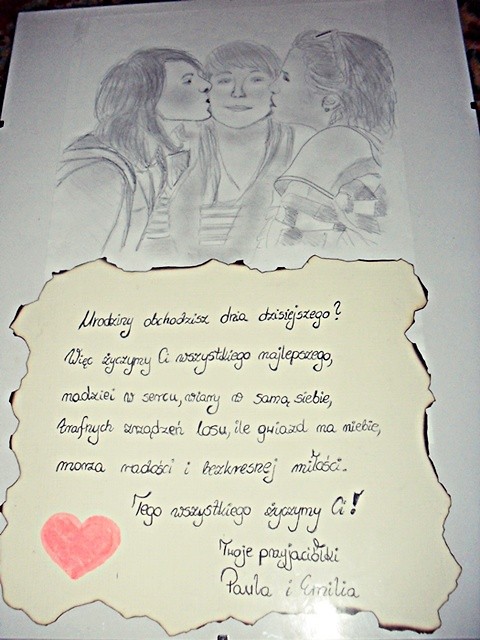 Urodziny obchodzisz dnia dzisiejszego?
Więc życzymy Ci wszystkiego najlepszego,
nadziei w sercu, wiary w samą siebie,
trafnych zrządzeń losu, ile gwiazd na niebie,
morza radości i bezkresnej miłości.
Tego wszystkiego życzymy Ci!
Twoje przyjaciółki
Paula i Emilia